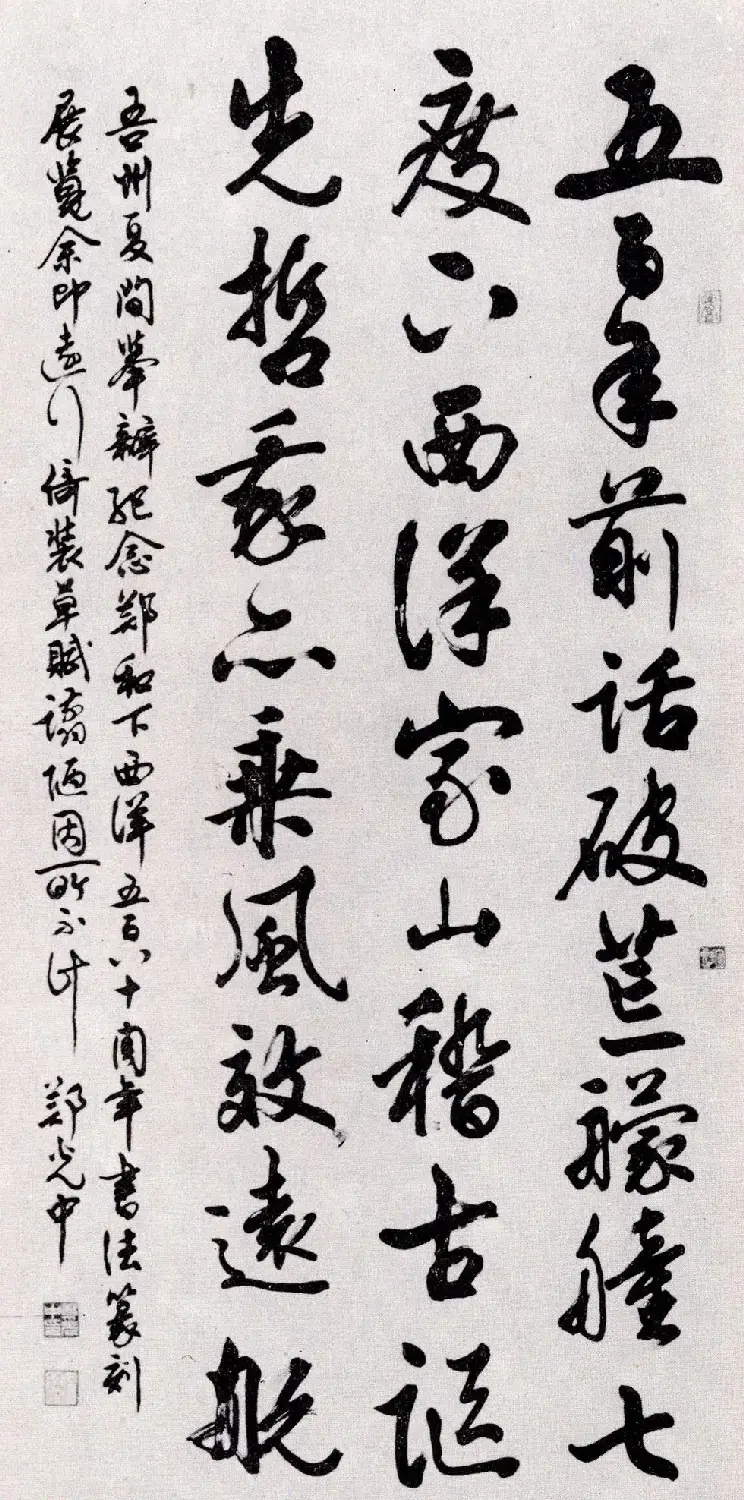 五百年前話破荒艨艟七
度下西洋家山稽古謳
先哲我亦乘風效遠航
吾州夏間舉辦紀念郑和下西洋五百八十周年書法篆刻
展覽余即遠行倚裝草賦譾陋固所不計 郑光中